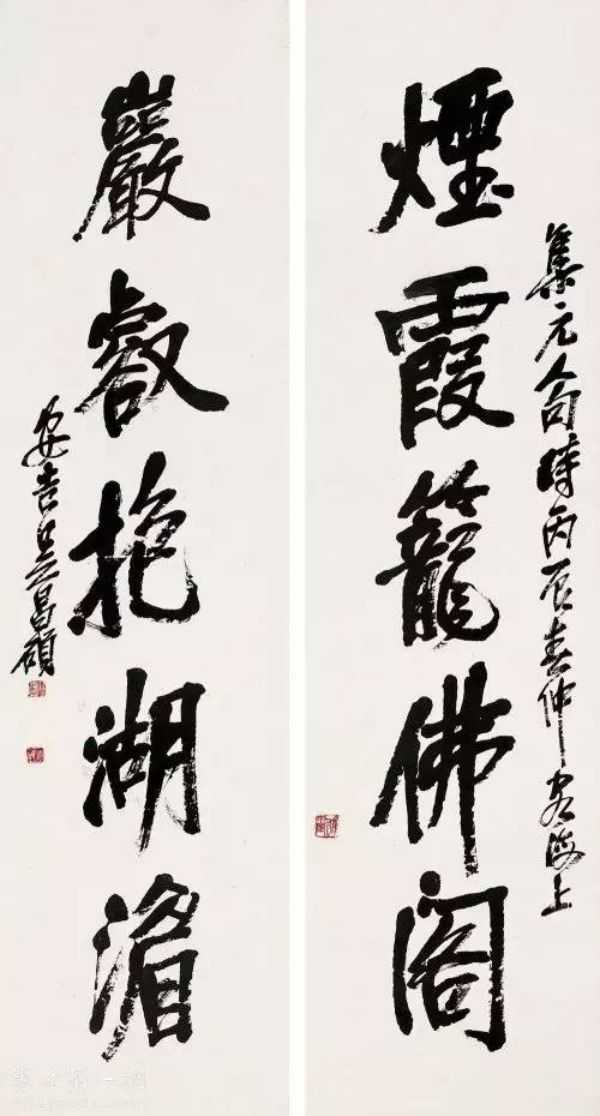 煙霞籠佛閣
集元人句時丙辰春仲客海上
巖壑抱湖
安吉吳昌碩